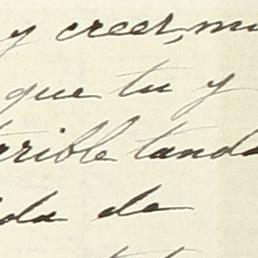 y creer, mu
que tu y
arible tanda
ida de